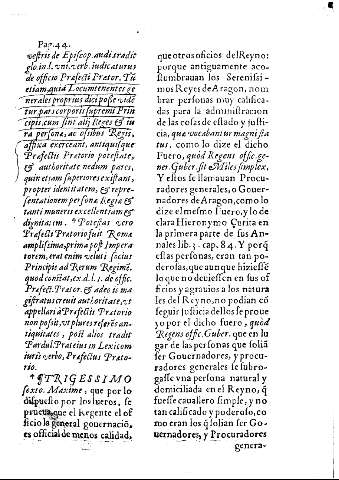 Pag. 44.
vestris de Episcop. audi. tradit
glo. in l. vnt. verb. indicaturus
de officio Præfecti Prætor. Tũ
etiam, quia Locumtenentes ge
nerales proprius dici posse vidẽ
tur pars corporis supremi Prin
cipis, cum sint alij Reges & iu
ra persona, ac ossibus Regis,
affixa exerceant, antiquisque
Præfectis Pretorio potestate,
& authoritate nedum pares,
quin etiam superiores existant,
propter identitatem, & repre-
sentationem persona Regia &
tanti muneris excellentiam &
dignitatem. Potestas vero
Præfecti Prætorio fuit Roma
amplissima, prima post Impera
torem, erat enim veluti socius
Principis ad Rerum Regimẽ.
quod constat, ex d. l. 1. de offic.
Præfect. Præter. & adeo is ma
gistratus creuit authoritate, vt
appellari à Præfectis Prætorio
non possit, vt plures referẽs an-
tiquitates, post alios tradit
Pardul. Prateius in Lexicom
iuris verbo, Præfectus Præto-
rio.
¶TRIGESSIMO
sexto. Maxime, que por lo
dispuesto por los fueros, se
prueua, que el Regente el of
ficio la general gouernaciõ,
es official de menos calidad,
que otros oficios del Reyno:
porque antiguamente aco-
stumbrauan los Serenissi-
mos Reyes de Aragon, nom
brar personas muy califica-
das para la administracion
de las cosas de estado y justi-
cia, qua vocabantur magnista
tus. como lo dize el dicho
Fuero, quòd Regens offic. ge-
ner. Guber. sit Miles simplex.
Y estos se llamauan Procu-
radores generales, o Gouer-
nadores de Aragon, como lo
dize el mesmo Fuero, y lo de
clara Hieronymo Çurita en
la primera parte de sus An-
nales lib. 3. cap. 84. Y porq̃
estas personas, eran tan po-
derosas, que aun que hiziessẽ
lo que no deuiessen en sus of
ficios y agrauios a los natura
les del Reyno, no podian cõ
seguir justicia dellos se proue
yo por el dicho fuero, quòd
Regens offic. Guber. que en lu
gar de las personas que soliã
ser Gouernadores, y procu-
radores generales se subro-
gasse vna persona natural y
domiciliada en el Reyno, q̃
fuesse cauallero simple, y no
tan calificado y poderoso, co
mo eran los q̃ solian ser Go-
uernadores, y Procuradores
genera-